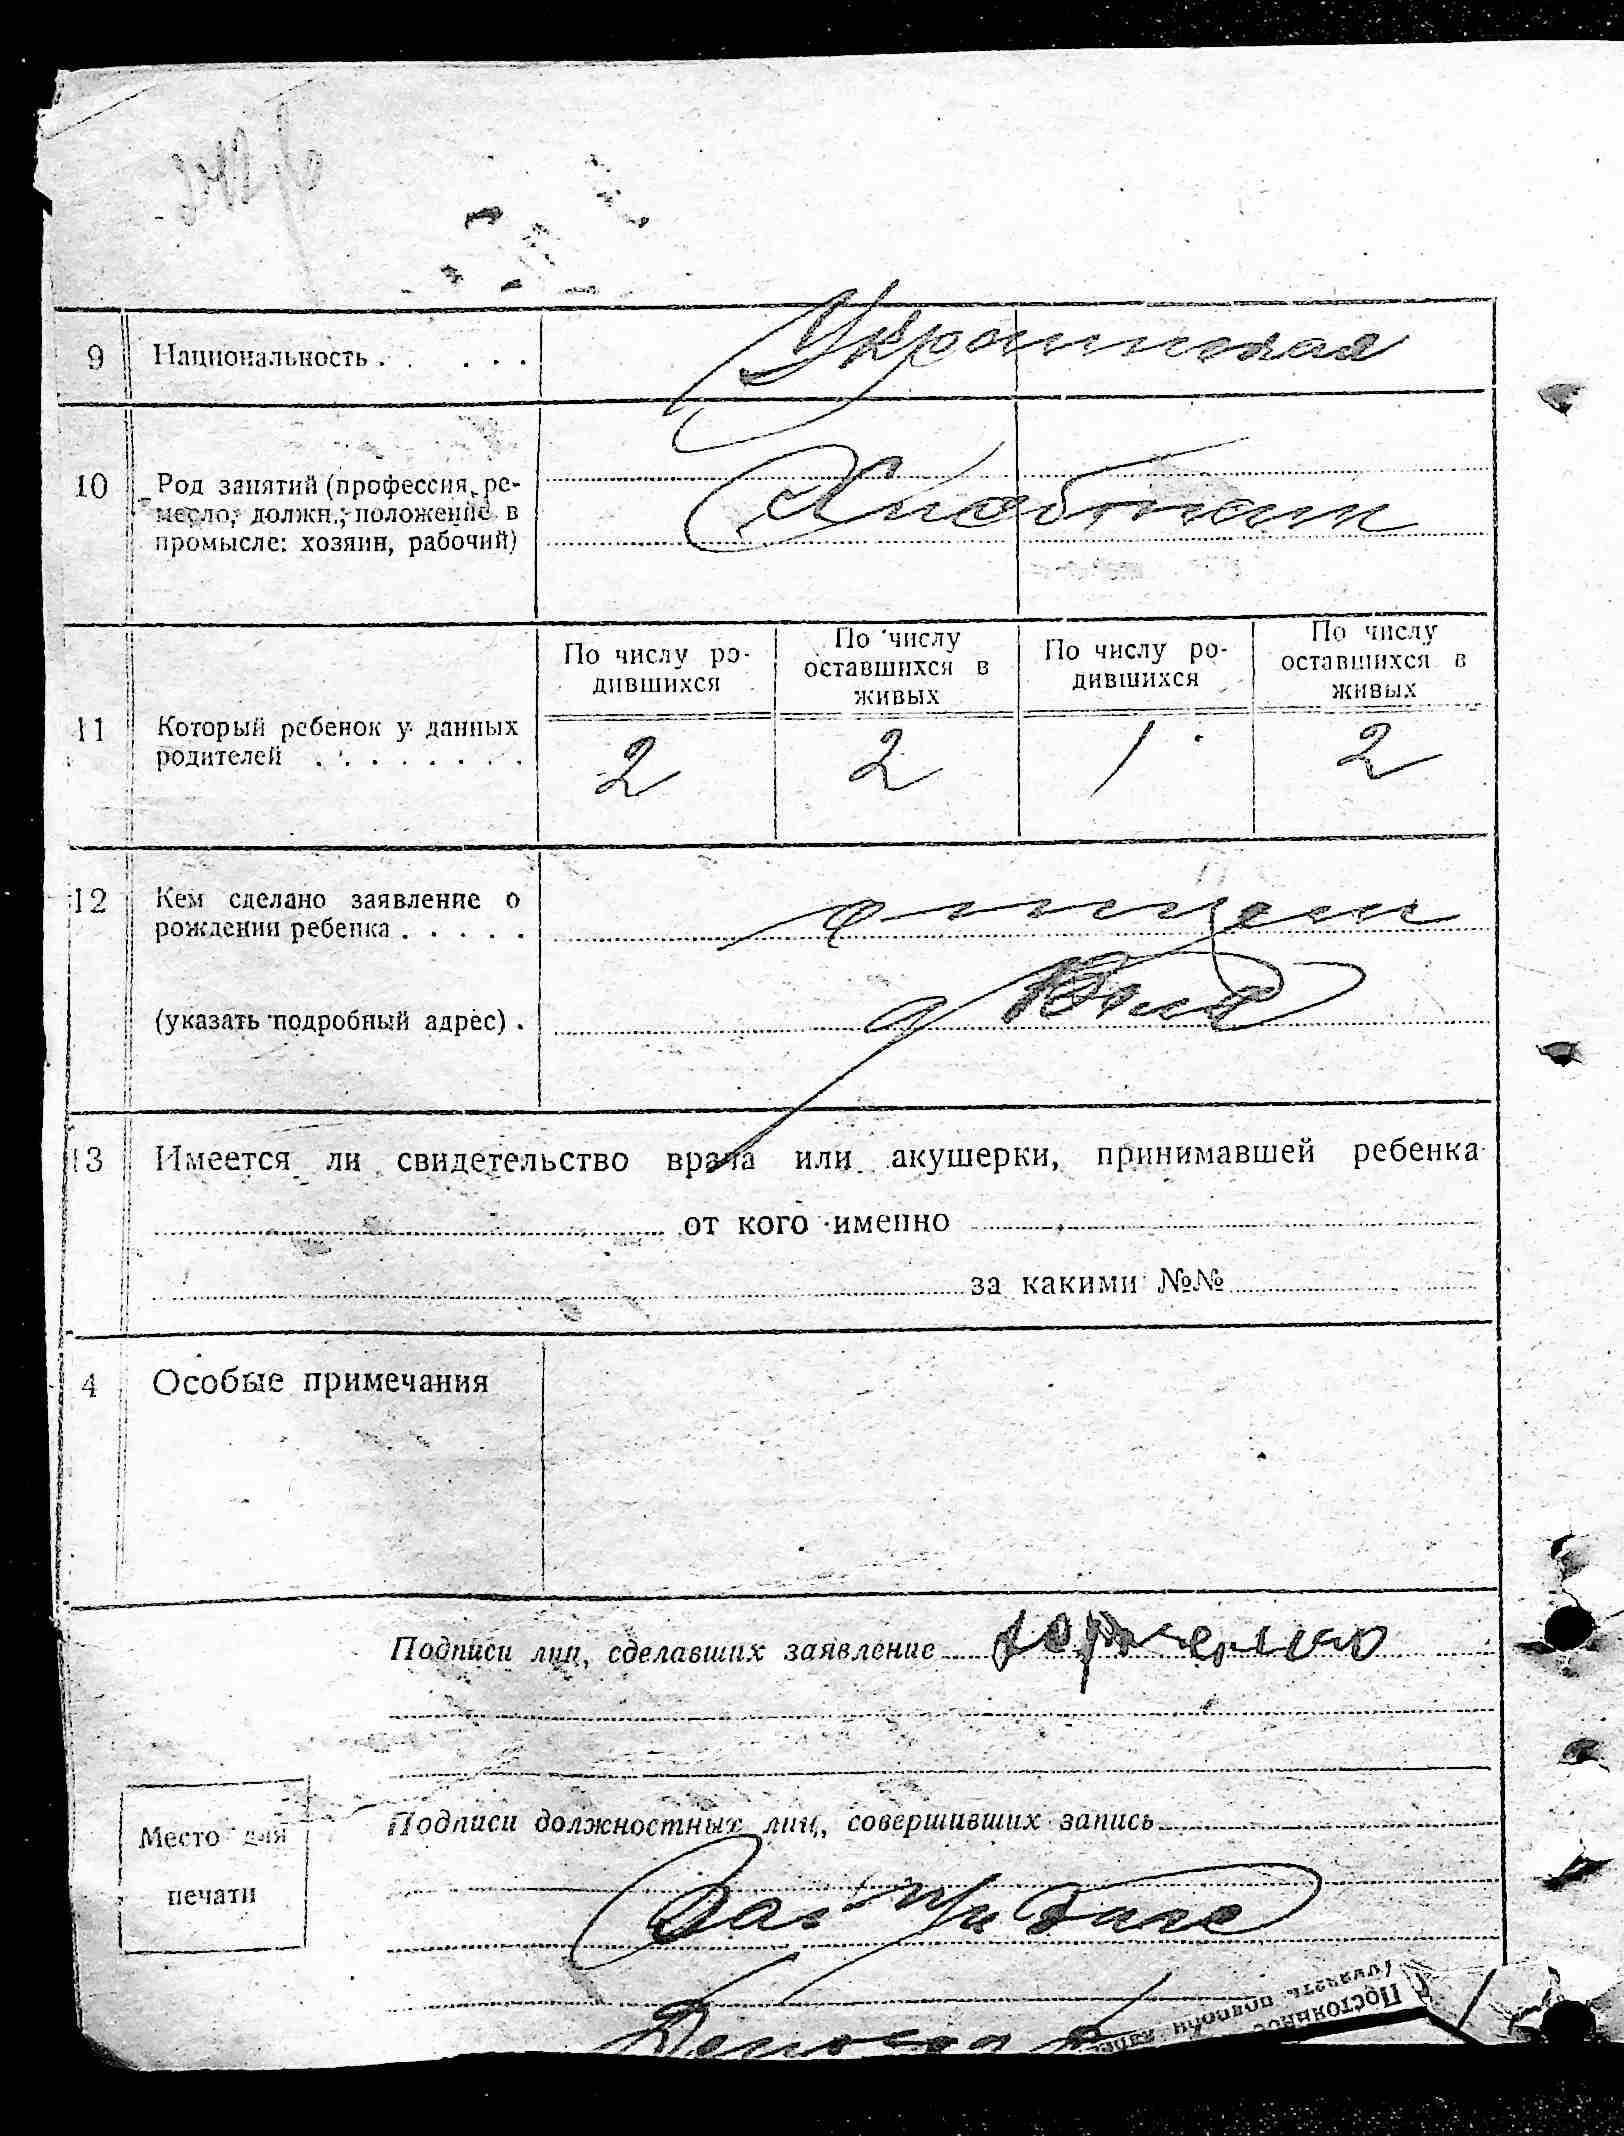 9 Национальность . . . . . Украинская
10 Род занятий (профессия, ре-
месло, должн., положение в
промысле: хозяин, рабочий)
По числу ро-
дившихся
По числу
оставшихся в
живых
По числу ро-
дившихся
По числу
оставшихся в
живых
11 Который ребенок у данных
родителей . . . . . . . .
2 2 1 2
12 Кем сделано заявление о
рождении ребенка . . . . . отцем
(указать подробный адрес) .
13 Имеется ли свидетельство врача или акушерки, принимавшей ребенка
от кого именно
за какими №№
4 Особые примечания
Подписи лиц, сделавших заявление
Место для
печати
Подписи должностных лиц, совершивших запись
Постоянное
(указать